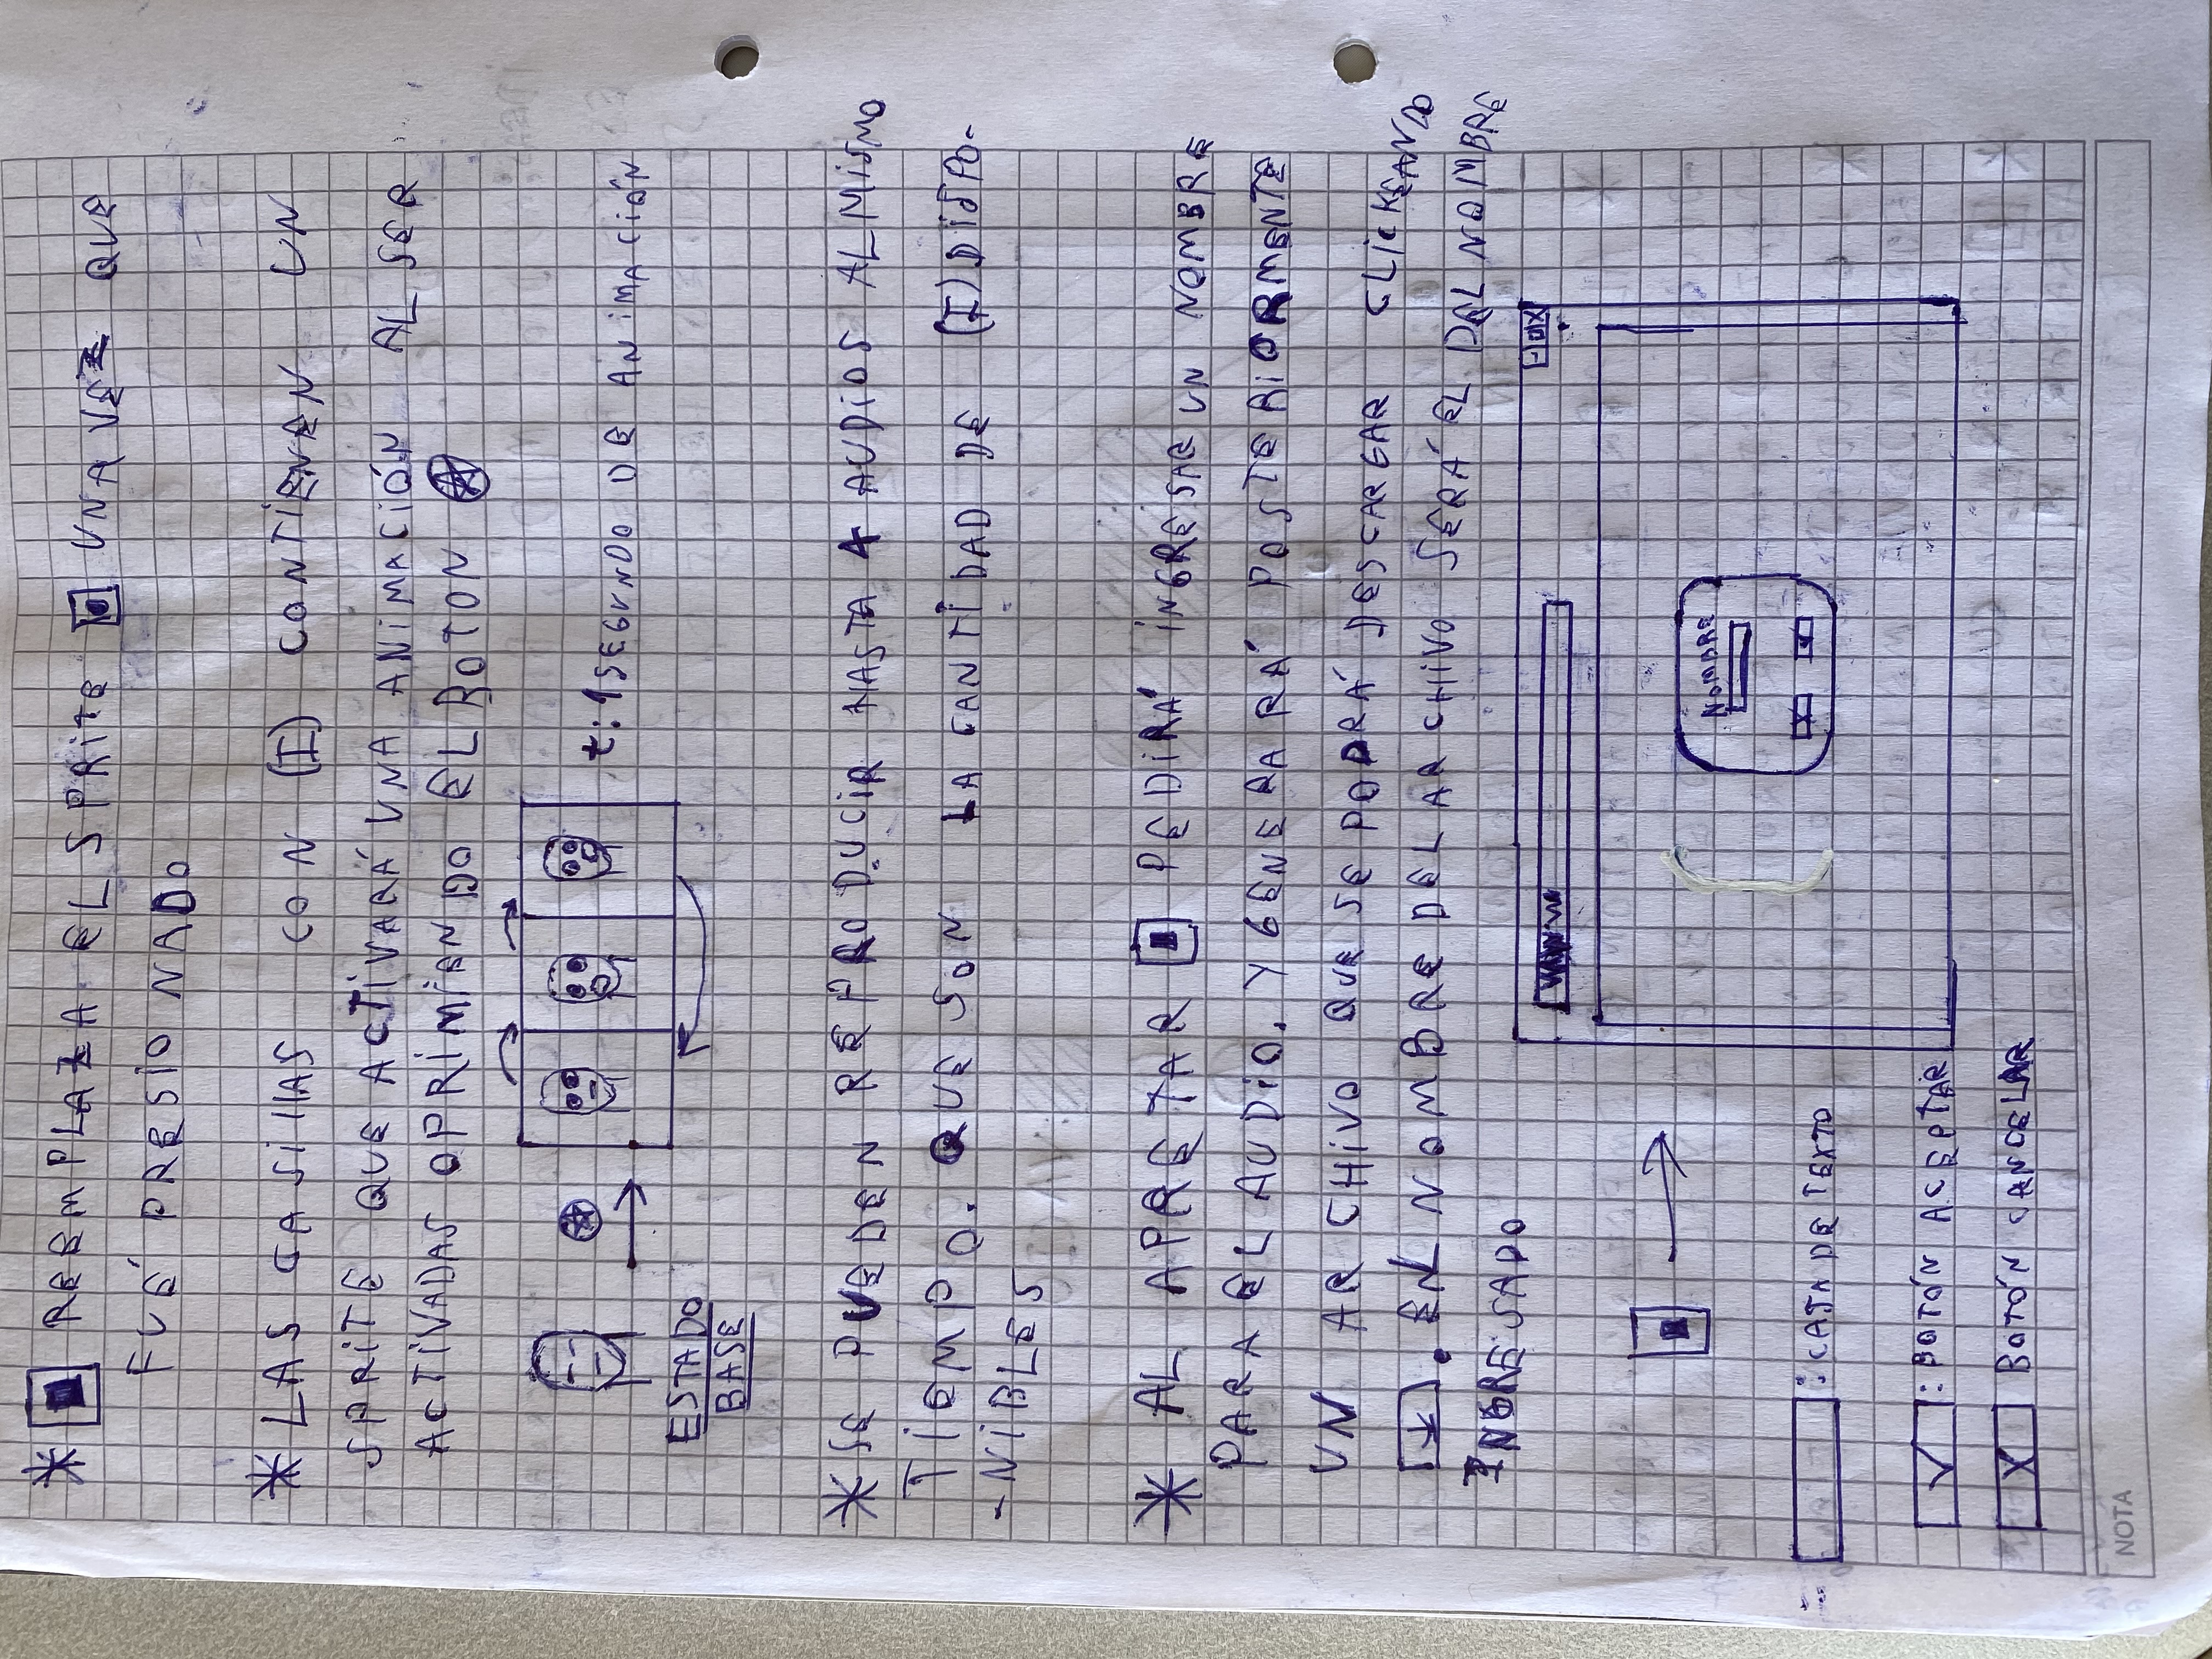 * REEMPLAZA EL SPRITE UNA VEZ QUE
FUÉ PRESIONADO
* LAS CASILLAS CON (I) CONTIENEN UN
SPRITE QUE ACTIVARÁ UNA ANIMACIÓN AL SER
ACTIVADAS OPRIMIENDO EL BOTON
t: 1 SEGUNDO DE ANIMACIÓN
ESTADO
BASE
* SE PUEDEN REPRODUCIR HASTA 4 AUDIOS AL MISMO
TIEMPO. QUE SON LA CANTIDAD DE (I) DISPO-
-NIBLES
* AL APRETAR PEDIRÁ INGRESAR UN NOMBRE
PARA EL AUDIO. Y GENERARÁ POSTERIORMENTE
UN ARCHIVO QUE SE PODRÁ DESCARGAR CLICKEANDO
. EN NOMBRE DEL ARCHIVO SERÁ EL DEL NOMBRE
INGRESADO
NOMBRE
: CAJA DE TEXTO
: BOTÓN ACEPTAR
X BOTÓN CANCELAR
NOTA